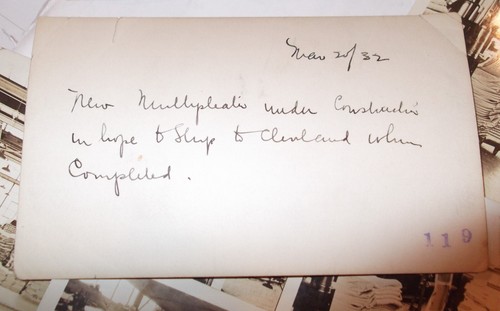 Mar 20/32
New Multiplealis under Construction
in hope to Ship to Cleveland when
Completed.
119